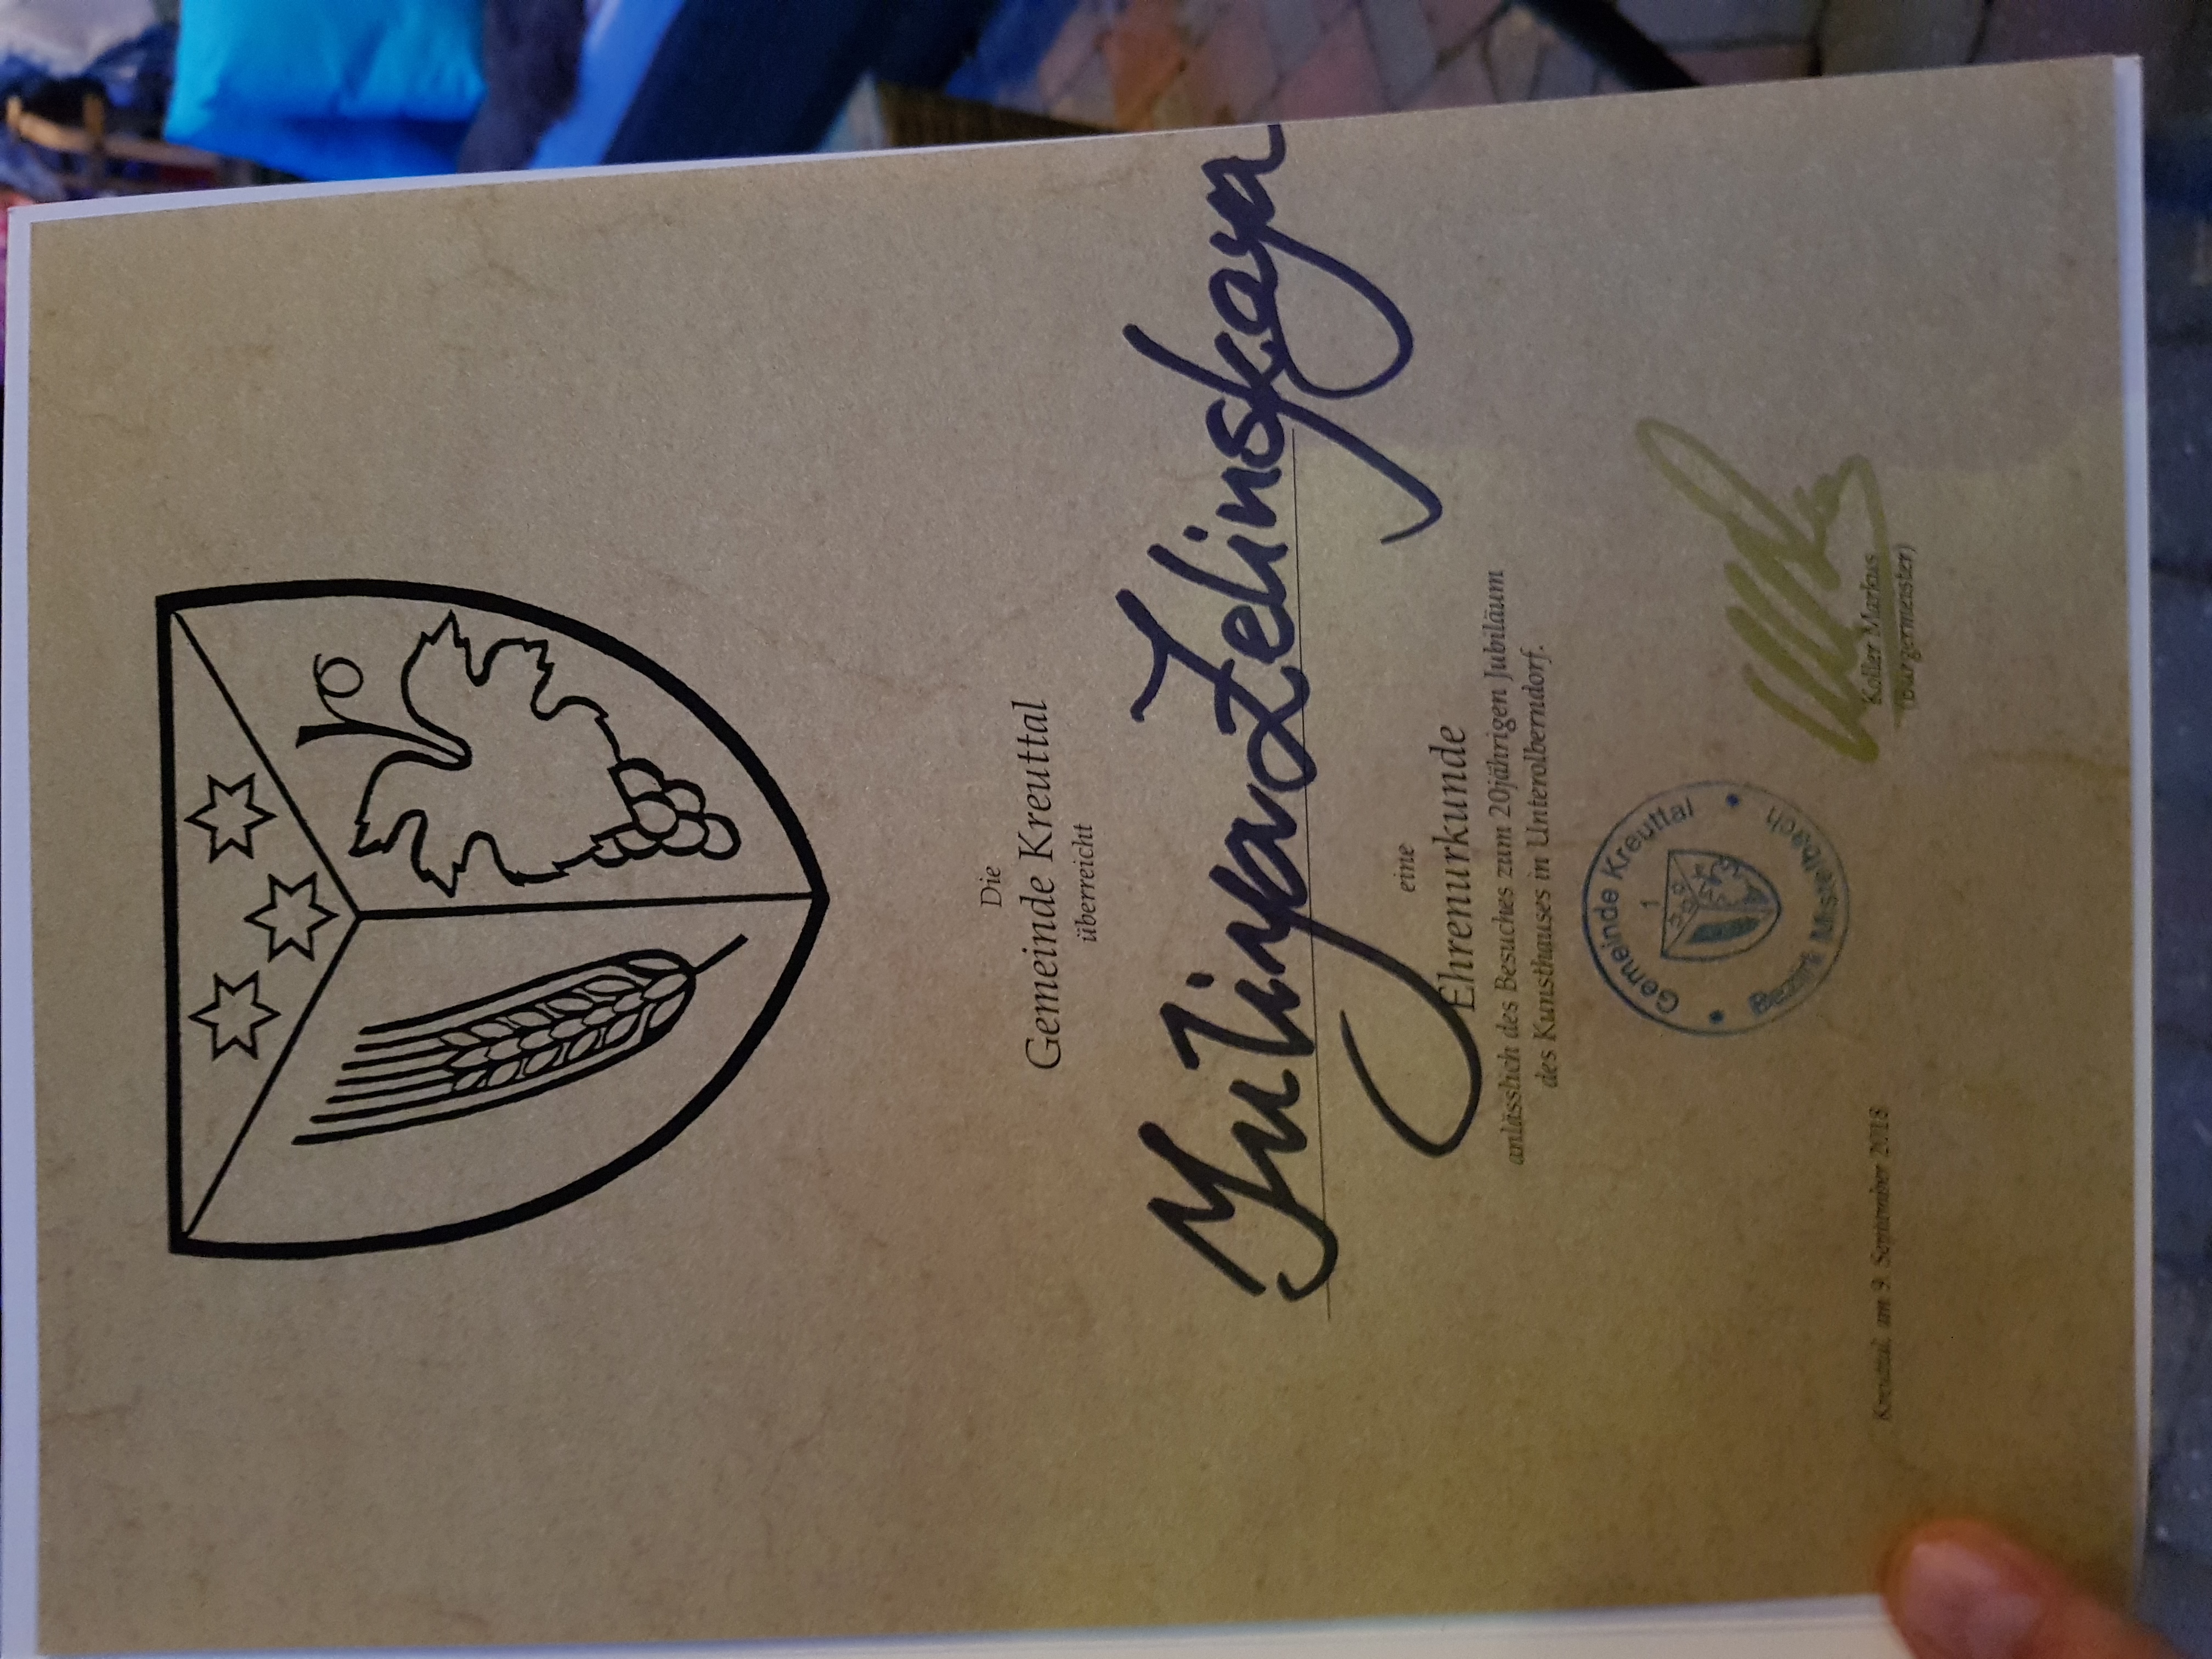 Die
Gemeinde Kreuttal
überreicht
Yuliya Zelinskaya
eine
Ehrenurkunde
anlässlich des Besuches zum 20jährigen Jubiläum
des Kunsthauses in Unterolberndorf.
Gemeinde Kreuttal
1
Bezirk Mistelbach
Kreuttal, am 9. September 2018
Koller Markus
(Bürgermeister)